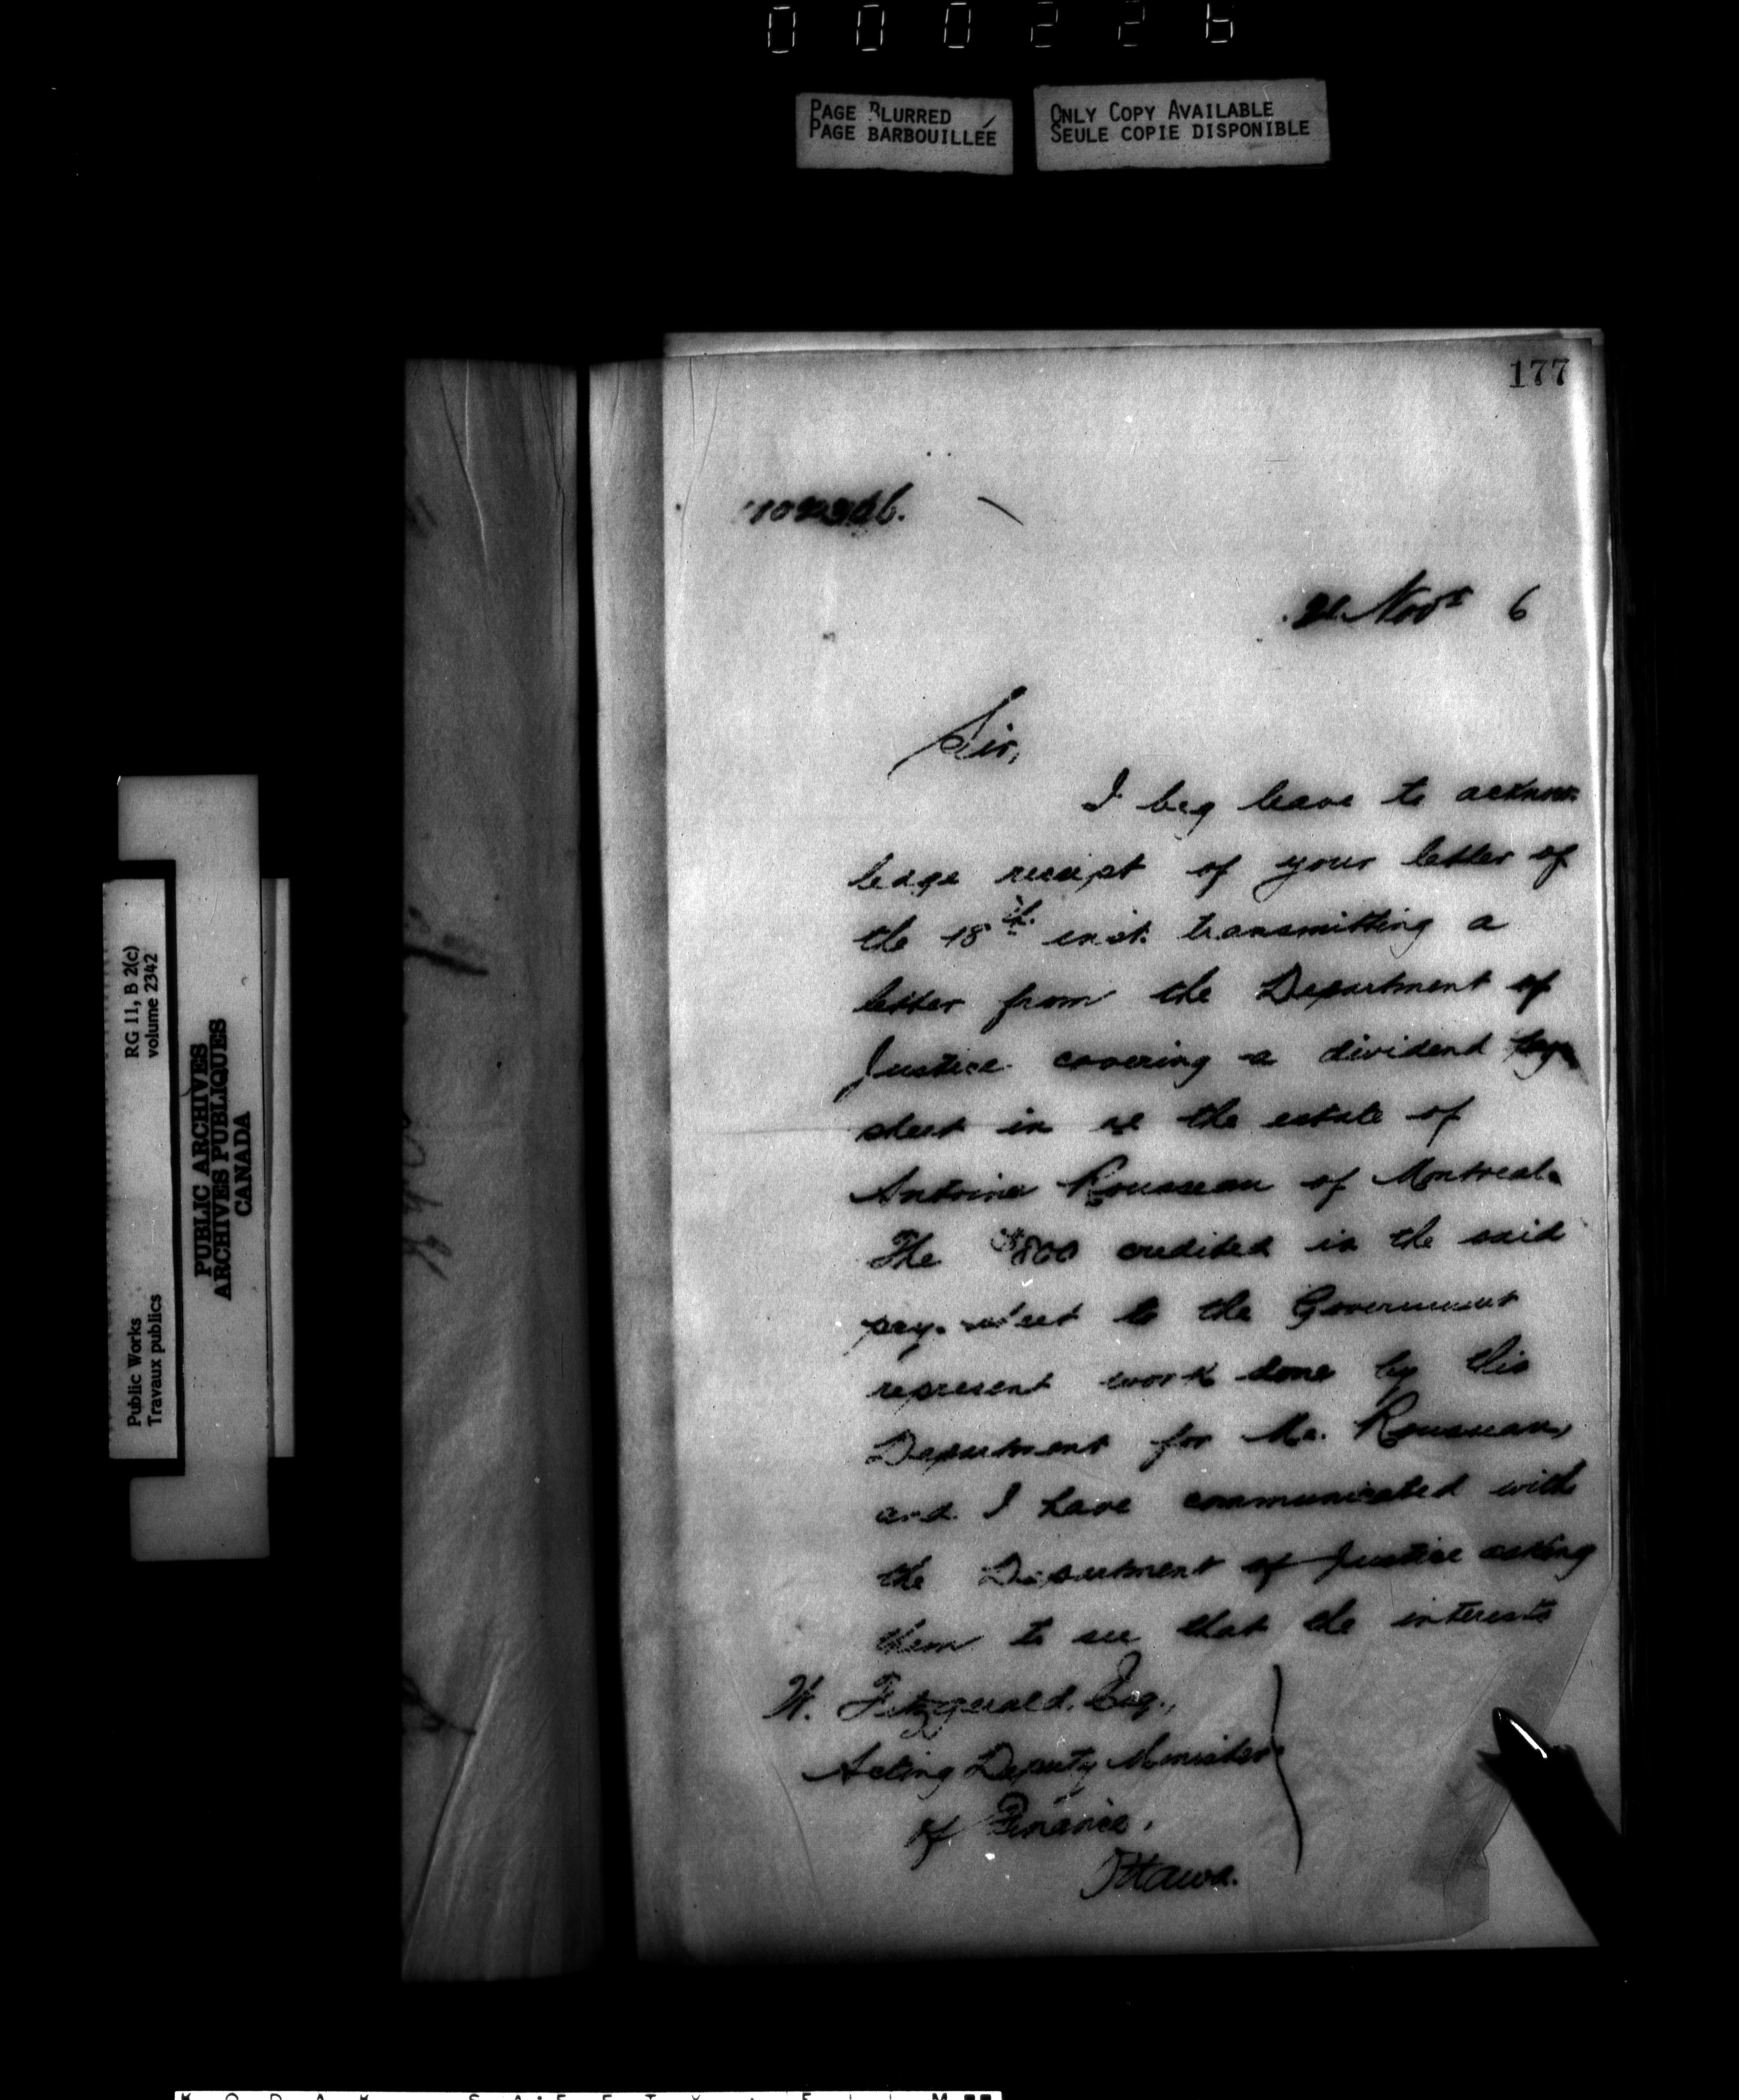 000226
PAGE BLURRED
PAGE BARBOUILLÉE
ONLY COPY AVAILABLE
SEULE COPIE DISPONIBLE
177
Novr 6
Sir,
I beg leave to acknow
ledge receipt of your letter of
the 18th inst. transmitting a
letter from the Department of
Justice covering a dividend pay
sheet in re the estate of
Antoine Rousseau of Montreal.
The $800 credited in the said
pay-sheet to the Government
represent work done by this
Department for Mr. Rousseau,
and I have communicated with
the Department of Justice asking
them to see that the interests
W. Fitzgerald, Esq.,
Acting Deputy Minister
of Finance,
Ottawa.
RG 11, B 2(c)
volume 2342
Public Works
Travaux publics
PUBLIC ARCHIVES
ARCHIVES PUBLIQUES
CANADA